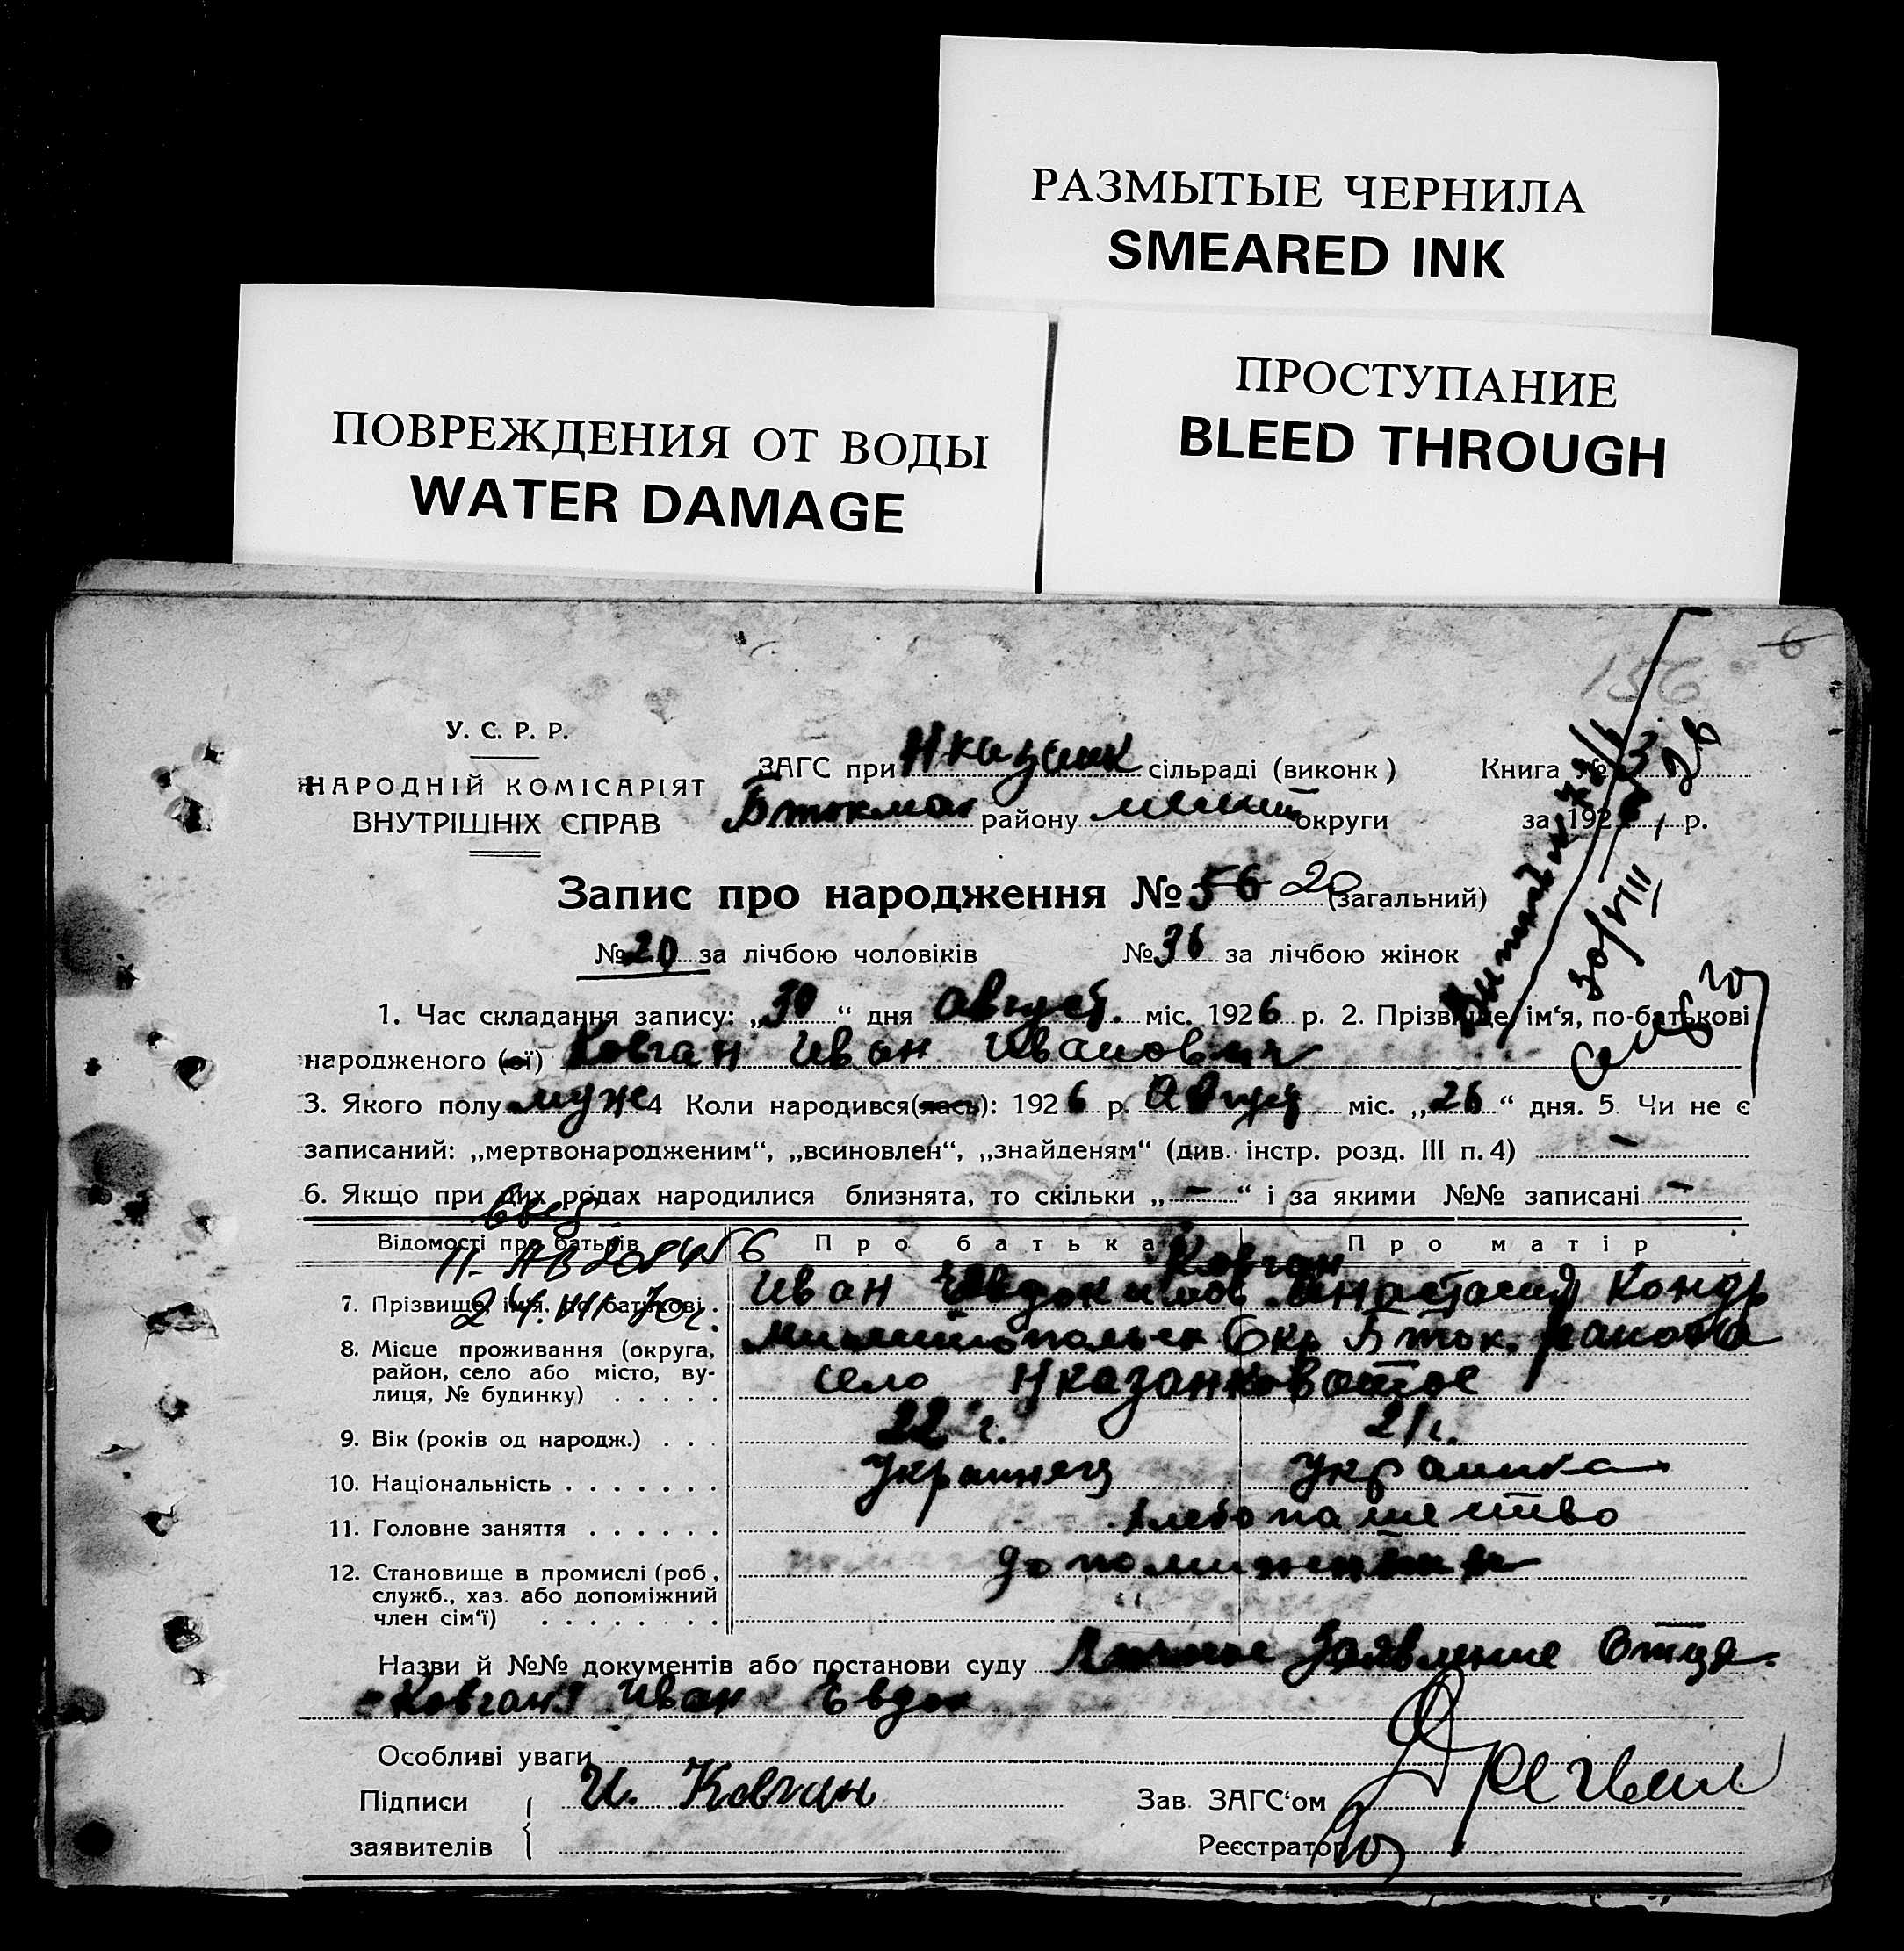 РАЗМЫТЫЕ ЧЕРНИЛА
SMEARED INK
ПОВРЕЖДЕНИЯ ОТ ВОДЫ
WATER DAMAGE
ПРОСТУПАНИЕ
BLEED THROUGH
6
156
У. С. Р. Р.
НАРОДНІЙ КОМІСАРІЯТ
ВНУТРІШНІХ СПРАВ
ЗАГС при сільраді (виконк)
району округи
Книга № 3
за 1926 р.
Запис про народження № 56 20 (загальний)
№ 20 за лічбою чоловіків № 36 за лічбою жінок
30/VIII
1. Час складання запису: „30“ дня август. міс. 1926 р. 2. Прізвище, ім‘я, по-батькові
народженого (ої) Ковган Иван Иванович
3. Якого полу муже 4 Коли народився(лась): 1926 р. Август міс. „26“ дня. 5. Чи не є
записаний: „мертвонародженим“, „всиновлен“, „знайденям“ (див. інстр. розд. III п. 4) —
6. Якщо при цих родах народилися близнята, то скільки „—“ і за якими №№ записані —
Відомості про батьків Про батька Про матір
Ковган
7. Прізвище, ім‘я, по батькові. Иван Евдокимов Анастасия Кондр
8. Місце проживання (округа, район, село або місто, вулиця, № будинку) Окр Б ток. района
село Нказанковатое
9. Вік (років од народж.) 22 г. 21 г.
10. Національність Украинец Украинка
11. Головне заняття хлебопашество
12. Становище в промислі (роб, служб., хаз. або допоміжний член сім‘ї)
Назви й №№ документів або постанови суду Личное Заявление Отца.
Ковган Иван Евдок
Особливі уваги
Підписи заявителів И. Ковган
Зав. ЗАГС‘ом
Реєстратор